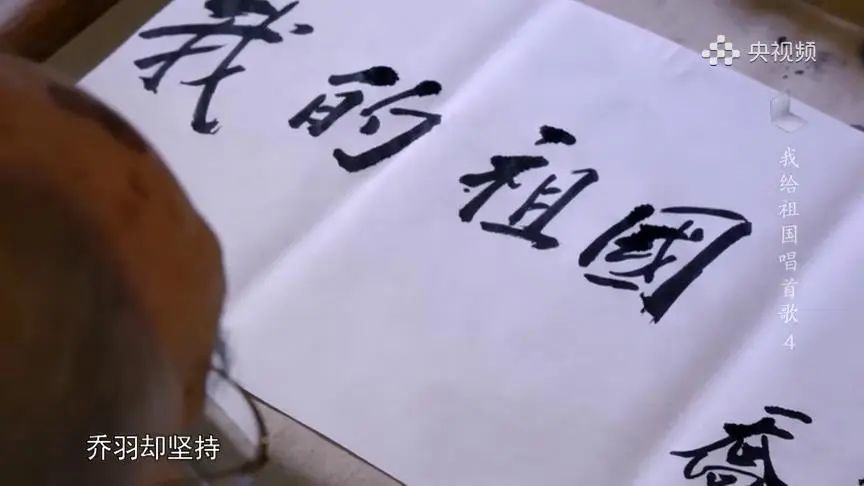 央视频
我的祖國
喬
我给祖国唱首歌 4
乔羽却坚持